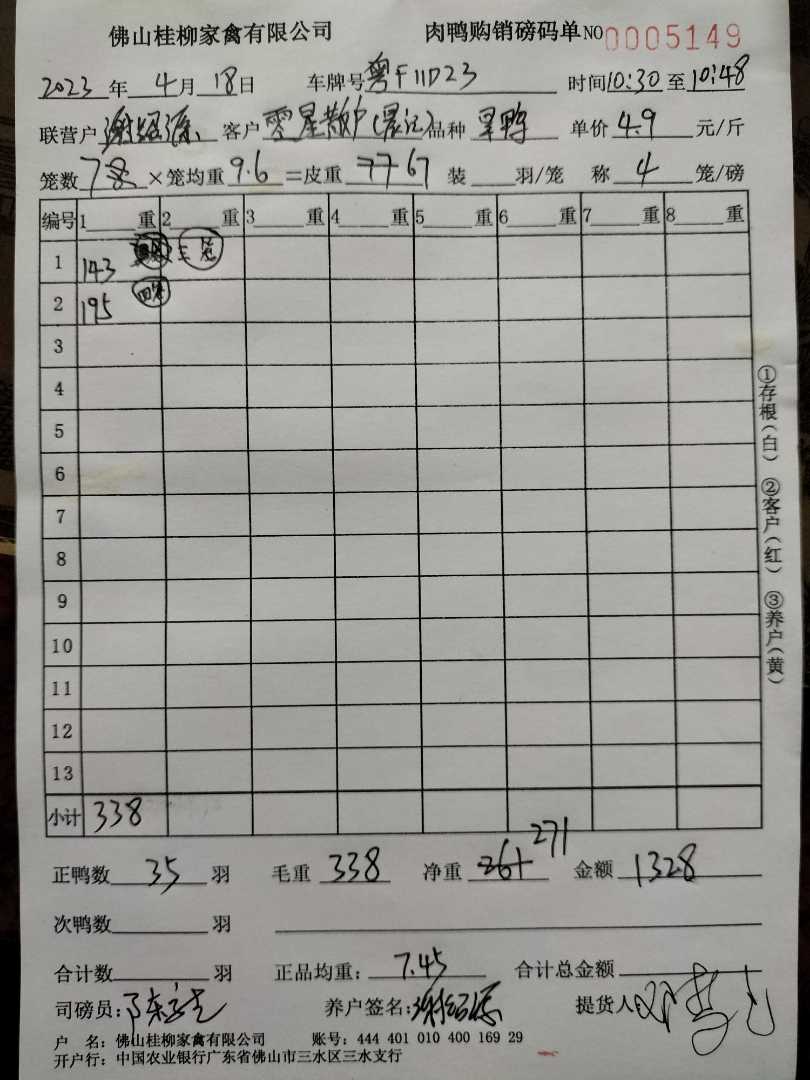 佛山桂柳家禽有限公司 肉鸭购销磅码单 NO 0005149
2023年 4月 18日 车牌号 粤F11D23 时间 10:30 至 10:48
联营户 谢绍源 客户 零星散户 品种 旱鸭 单价 4.9 元/斤
笼数 7 × 笼均重 9.6 = 皮重 67 装 羽/笼 称 4 笼/磅
编号 1 重 2 重 3 重 4 重 5 重 6 重 7 重 8 重
1 143 三笼
2 195 四笼
3
4
5
6
7
8
9
10
11
12
13
小计 338
正鸭数 35 羽 毛重 338 净重 271 金额 1328
次鸭数 羽
合计数 羽 正品均重: 7.45 合计总金额
司磅员: 养户签名: 谢绍源 提货人
户 名: 佛山桂柳家禽有限公司 账号: 444 401 010 400 169 29
开户行: 中国农业银行广东省佛山市三水区三水支行
①存根(白) ②客户(红) ③养户(黄)